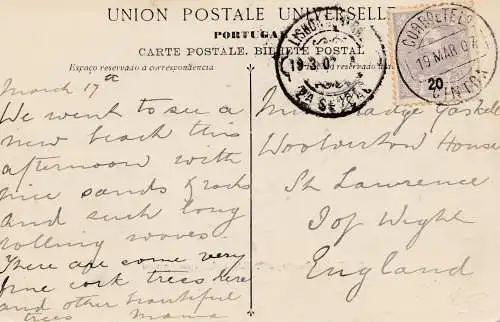 UNION POSTALE UNIVERSELLE
PORTUGAL
CARTE POSTALE. BILHETE POSTAL
Espaço reservado a correspondencia
reservado
LISBOA
19-3-07
2ª SECÇÃO
CORREIO E TELEG
19 MAR 07
CINTRA
20
March 17th
We went to see a
new beach this
afternoon with
nice sands & rocks
and such long
rolling waves.
There are some very
fine cork trees here
and other beautiful
trees Mama
Madge Gaskell
Woolverton House
St Lawrence
I of Wight
England